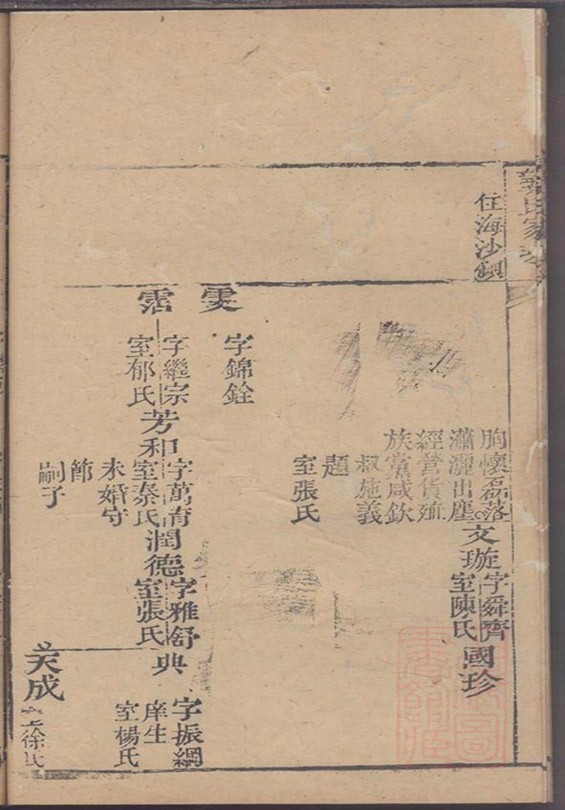 氏家
住海沙
胸懷磊落
瀟灑出塵
經營貨殖
族黨咸欽
叔施義
題
室張氏
文璇
字舜齊
室陳氏
國珍
雯
字錦銓
霑
字繼宗
室郁氏
芳和
字萬育
室秦氏
未婚守
節
嗣子
潤德
字雅舒
室張氏
典
字振綱
庠生
室楊氏
天成
徐氏